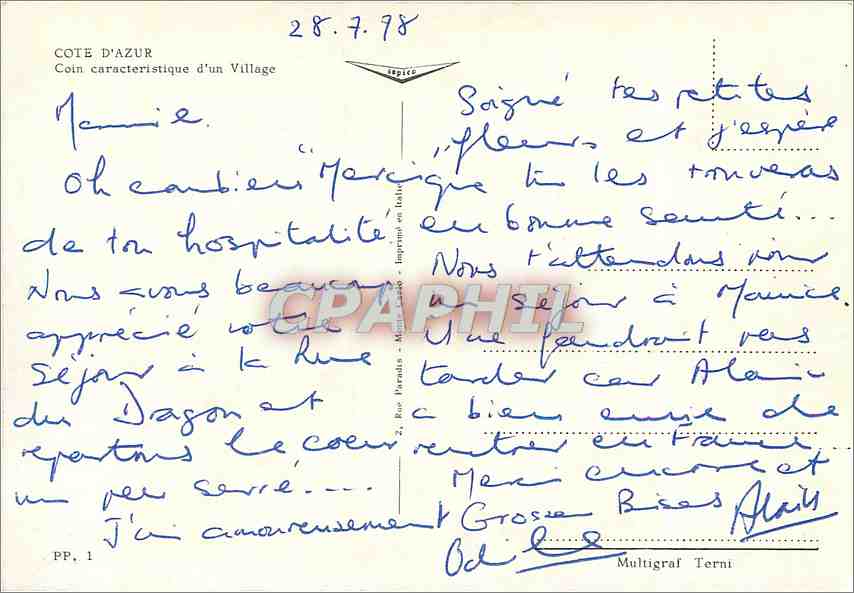 28.7.98
COTE D'AZUR
Coin caracteristique d'un Village
sapico
Mannie.
Oh combien "Merci"
de ton hospitalité.
Nous avons beaucoup
apprécié votre
séjour à la Rue
du Dragon et
repartons le coeur
un peu serré....
J'ai amoureusement
Soigné tes petites
fleurs et j'espère
que tu les trouveras
en bonne santé...
Nous t'attendons pour
un séjour à Maurice.
Il ne faudrait pas
tarder car Alain
a bien envie de
rentrer en France...
Merci encore et
Grosses Bises Alain
Odile
2, Rue Paradis - Monte Carlo - Imprimé en Italie
CPAPHIL
PP. 1
Multigraf Terni